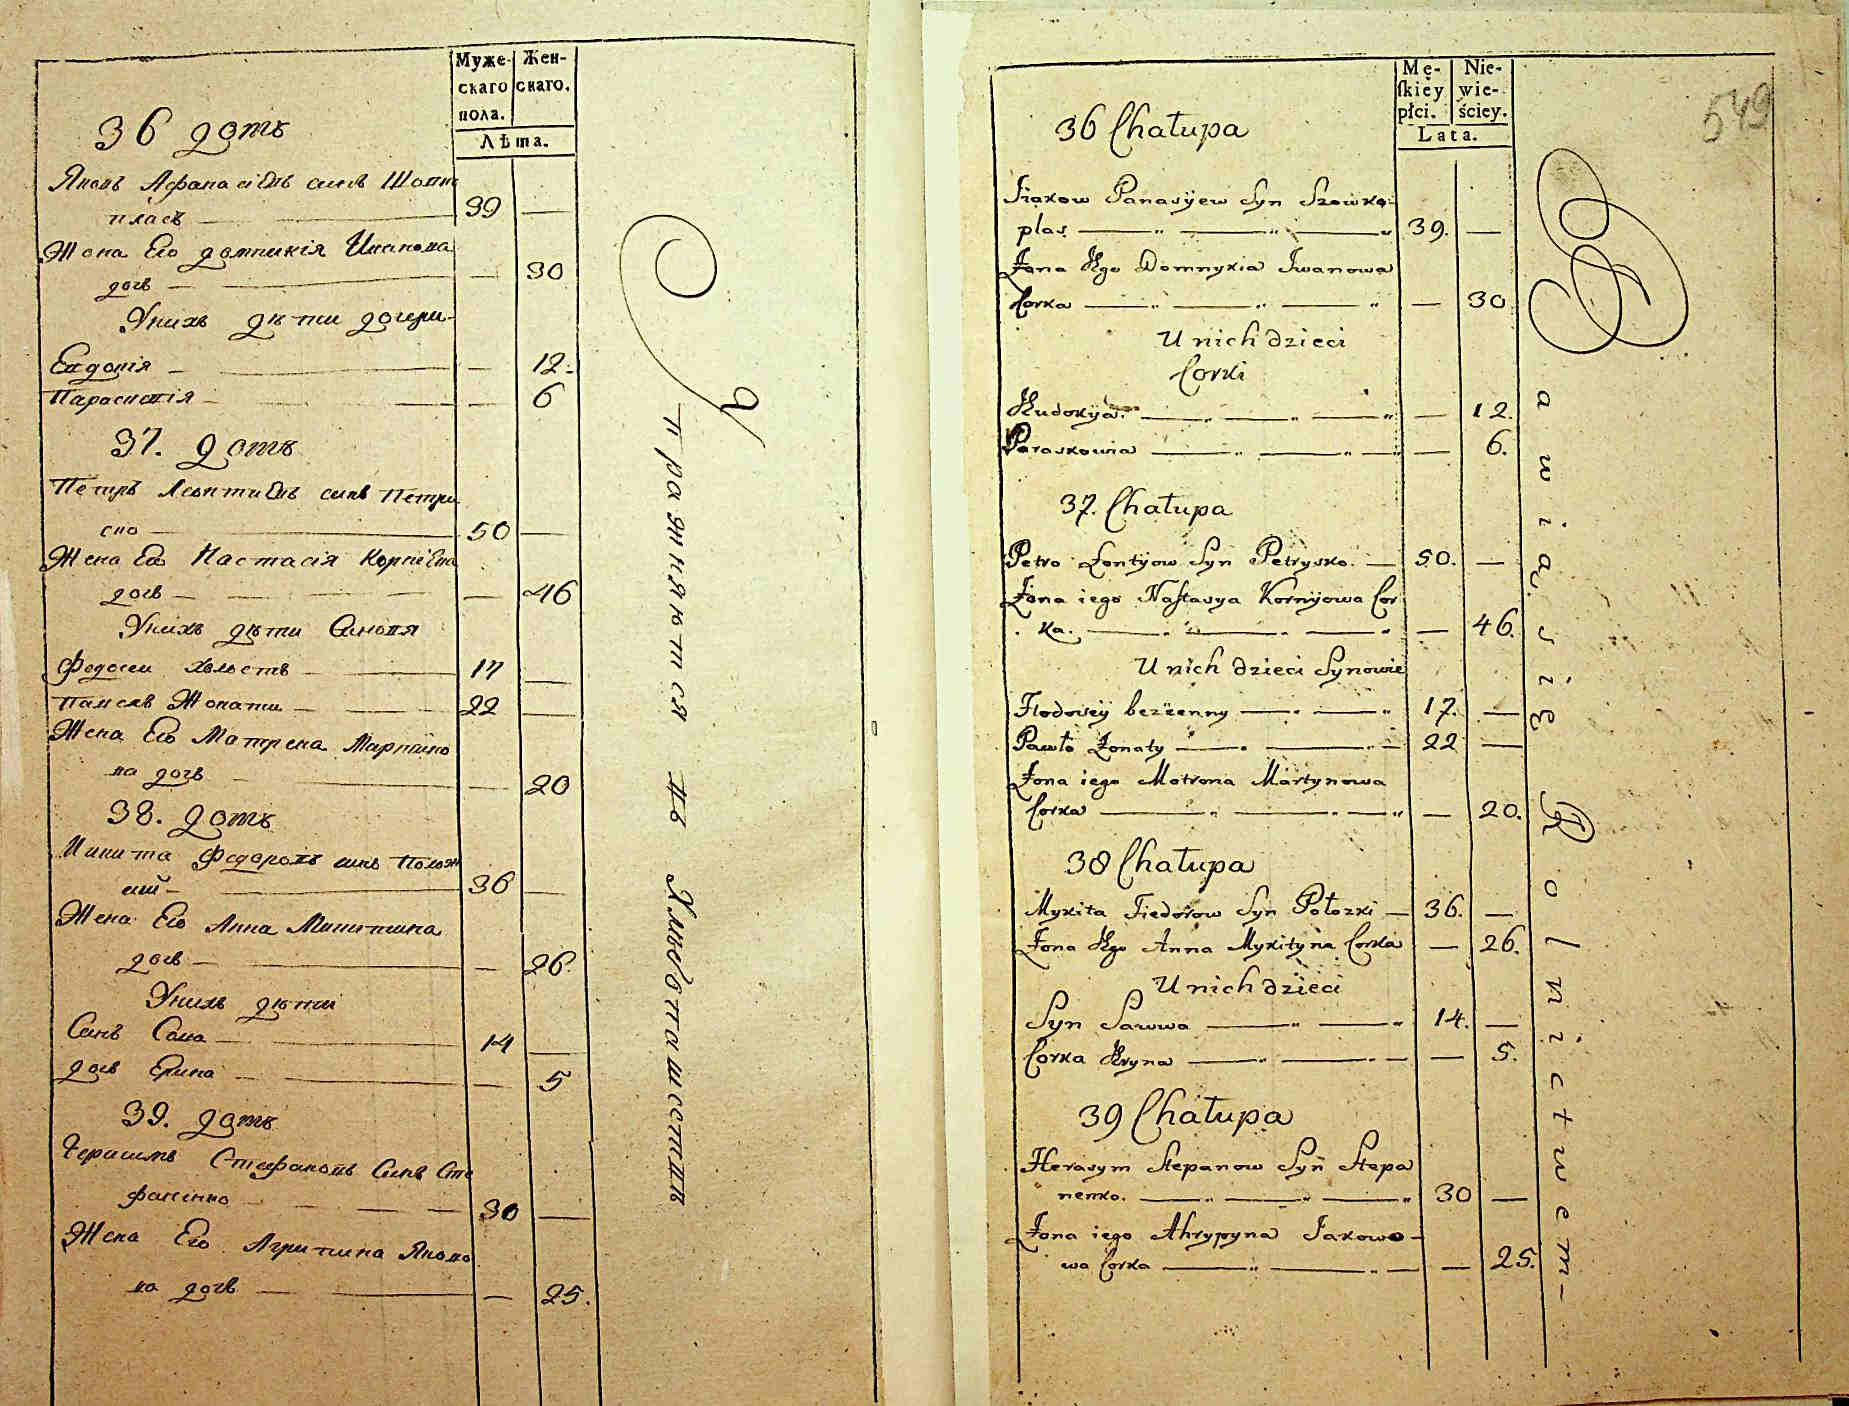 Муже-
скаго
пола.
Жен-
скаго.
Лѣта.
36 домъ
Яковъ Афанасіевъ синъ Шовко
пласъ 39
Жена Его Домникія Иванова
дочь 30
Унихъ дѣти дочери
Евдокія 12.
Парасковія 6
37. домъ
Петръ Леонтиевъ синъ Петри
ско 50
Жена Его Настасія Корніева
дочь 46
Унихъ дѣти Синовя
Федосеи холостъ 17
Павелъ Жонати 22
Жена Его Матрена Мартино
ва дочь 20
38. домъ
Микита Федоровъ синъ Полоз
кий 36
Жена Его Анна Микитина
дочь 26.
Унихъ дѣти
Синъ Сава 14
дочь Ерина 5
39. домъ
Герасимъ Стефановъ Синъ Сте
фаненко 30
Жена Его Агрипина Яково
ва дочь 25.
Упражняются въ Хлѣбопашествѣ
Mę-
ſkiey
płci.
Nie-
wie-
ściey.
Lata.
549
36 Chałupa
Jiakow Panasyiew Syn Szowko-
plas 39.
Żona Ego Domnykia Iwanowa
Corka 30
U nich dzieci
Corki
Eudokija 12.
Paraskowia 6.
37. Chałupa
Petro Lontyow Syn Petrysko. 50.
Żona iego Naſtasya Kornijowa Cor
ka. 46.
U nich dzieci Synowie
Fiodosey bezżenny 17.
Pawło Żonaty 22
Żona iego Motrona Martynowa
Corka 20.
38 Chałupa
Mykita Fiedorow Syn Połozki 36.
Żona Ego Anna Mykityna Corka 26.
U nich dzieci
Syn Sawwa 14.
Corka Eryna 5.
39 Chałupa
Herasym Stepanow Syn Stepa
nenko. 30
Żona iego Ahrypyna Jakowo-
wa Corka 25.
Bawią się Rolnictwem